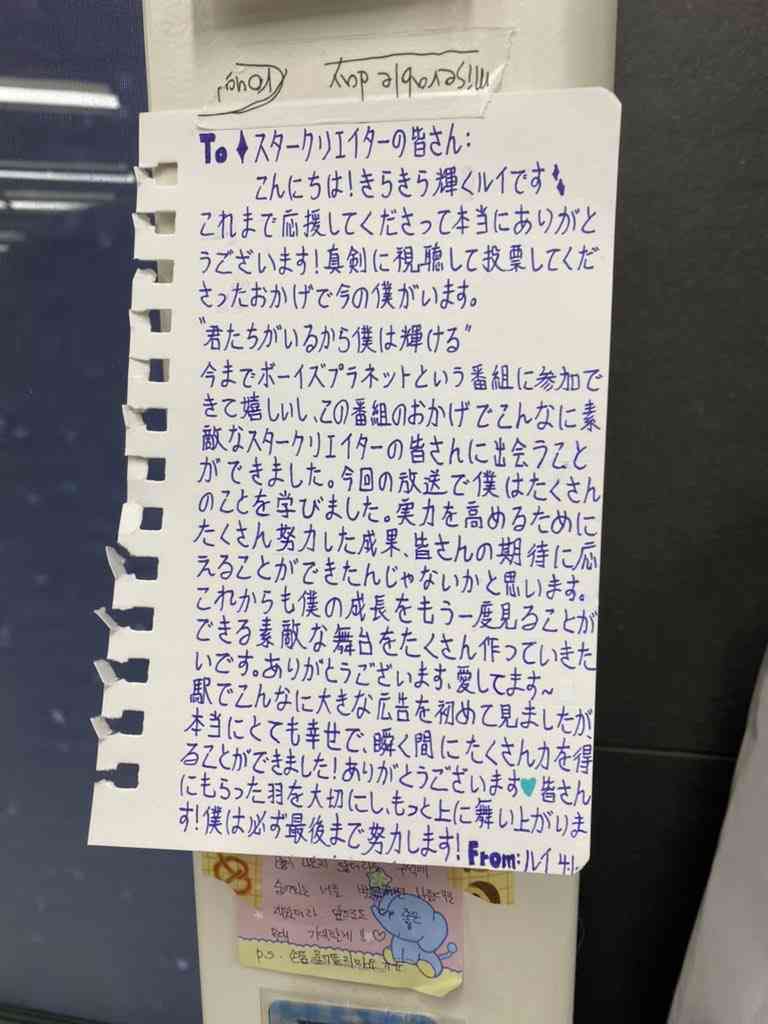 Miserable day
To♦スタークリエイターの皆さん:
こんにちは!きらきら輝くルイです
これまで応援してくださって本当にありがと
うございます!真剣に視聴して投票してくだ
さったおかげで今の僕がいます。
"君たちがいるから僕は輝ける"
今までボーイズプラネットという番組に参加で
きて嬉しいし、この番組のおかげでこんなに素
敵なスタークリエイターの皆さんに出会うこと
ができました。今回の放送で僕はたくさん
のことを学びました。実力を高めるために
たくさん努力した成果、皆さんの期待に応
えることができたんじゃないかと思います。
これからも僕の成長をもう一度見ることが
できる素敵な舞台をたくさん作っていきた
いです。ありがとうございます、愛してます~
駅でこんなに大きな広告を初めて見ましたが、
本当にとても幸せで、瞬く間にたくさん力を得
ることができました!ありがとうございます♥皆さん
にもらった羽を大切にし、もっと上に舞い上がりま
す!僕は必ず最後まで努力します! From:ルイ 4.1.